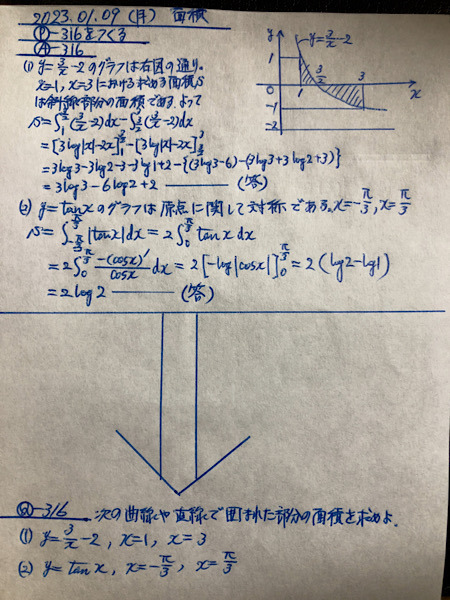 2023.01.09 (月) 面積
Ⓟ-316をつくる
Ⓐ-316
(1) y=3/x-2のグラフは右図の通り。
x=1, x=3における求める面積S
は斜線部分の面積である。よって
S=∫₁^{3/2}(3/x-2)dx-∫_{3/2}^3(3/x-2)dx
=[3log|x|-2x]₁^{3/2}-[3log|x|-2x]_{3/2}^3
=3log3-3log2-3-3log1+2-{(3log3-6)-(3log3+3log2+3)}
=3log3-6log2+2 (答)
y
y=3/x-2
1
3/2
3
0
1
x
-1
-2
(2) y=tanxのグラフは原点に関して対称である。x=-π/3, x=π/3
S=∫_{-π/3}^{π/3}|tanx|dx=2∫₀^{π/3}tanxdx
=2∫₀^{π/3}-(cosx)'/cosx dx=2[-log|cosx|]₀^{π/3}=2(log2-log1)
=2log2 (答)
Ⓠ-316 次の曲線や直線で囲まれた部分の面積を求めよ.
(1) y=3/x-2, x=1, x=3
(2) y=tanx, x=-π/3, x=π/3